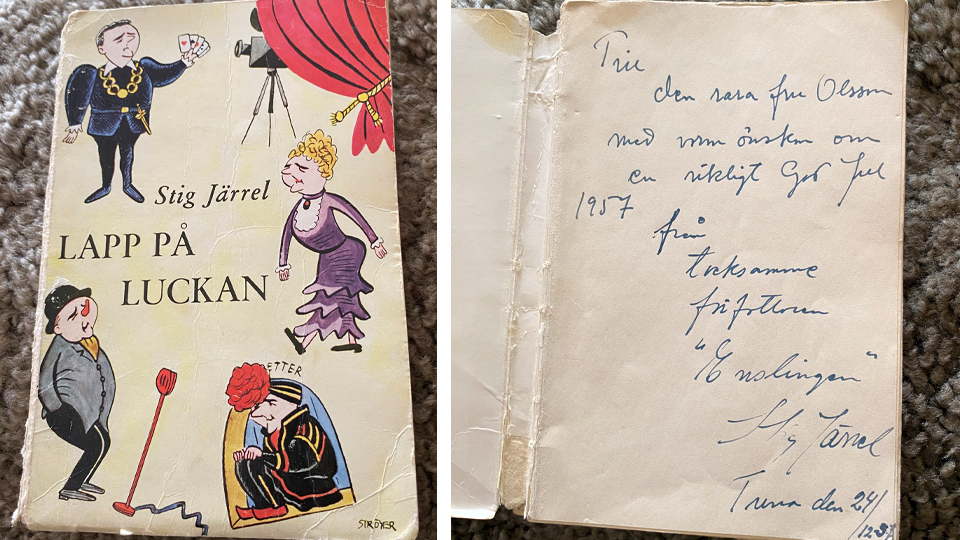 Stig Järrel
LAPP PÅ
LUCKAN
ETTER
STRÖYER
Till
den rara fru Olsson
med varm önskan om
en riktigt God Jul
1957
från
tacksamme
författaren
"Enslingen"
Stig Järrel
den 24/